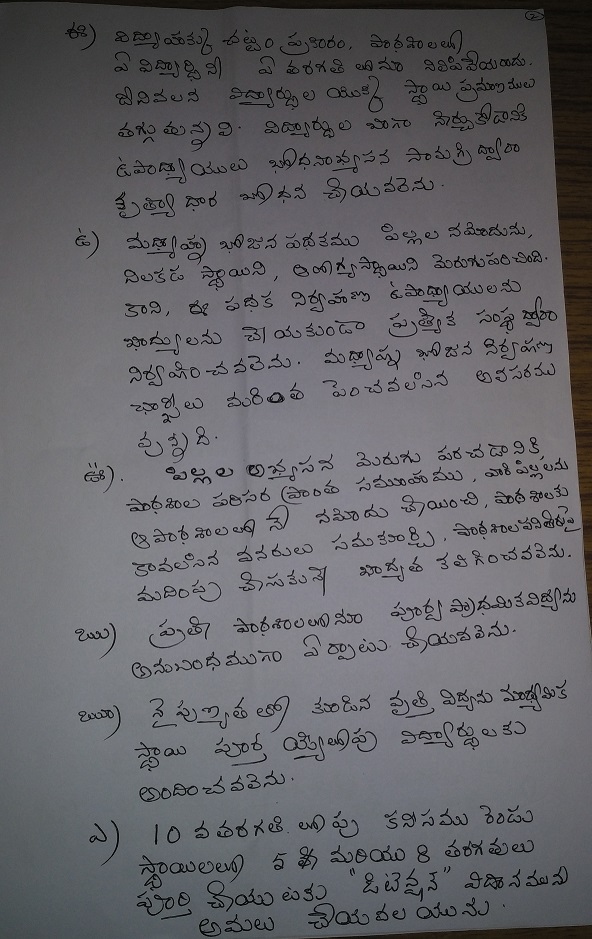 2
ఈ) విద్యాహక్కు చట్టం ప్రకారం, పాఠశాలలో
ఏ విద్యార్థిని ఏ తరగతి లోనూ నిలిపివేయరాదు.
దీనివలన విద్యార్థుల యొక్క స్థాయి ప్రమాణములు
తగ్గుతున్నవి. విద్యార్థుల బాగా నేర్చుకోడానికి
ఉపాధ్యాయులు బోధనాభ్యసన సామగ్రి ద్వారా
కృత్యాధార బోధన చేయవలెను.
ఉ) మధ్యాహ్న భోజన పథకము పిల్లల నమోదును,
నిలకడ స్థాయిని, ఆరోగ్యస్థాయిని మెరుగుపరచింది.
కాని, ఈ పథక నిర్వహణ ఉపాధ్యాయులను
బాధ్యులను చేయకుండా ప్రత్యేక సంస్థ ద్వారా
నిర్వహించవలెను. మధ్యాహ్న భోజన నిర్వహణ
ఛార్జీలు మరింత పెంచవలసిన అవసరము
వున్నది.
ఊ). పిల్లల అభ్యసన మెరుగు పరచడానికి
పాఠశాల పరిసర ప్రాంత సమూహము, వారి పిల్లలను
ఆ పాఠశాలలోనే నమోదు చేయించి, పాఠశాలకు
కావలసిన వనరులు సమకూర్చి, పాఠశాల పనితీరుపై
మదింపు చేసుకునే బాధ్యత కలిగించవలెను.
ఋ) ప్రతి పాఠశాలలోనూ పూర్వ ప్రాథమికవిద్యను
అనుబంధముగా ఏర్పాటు చేయవలెను.
ౠ) నైపుణ్యత తో కూడిన వృత్తి విద్యను మాధ్యమిక
స్థాయి పూర్తి య్యేలోపు విద్యార్థులకు
అందించవలెను.
ఎ) 10 వ తరగతి లోపు కనీసము రెండు
స్థాయిలలో 5 వ మరియు 8 తరగతులు
పూర్తి చేయుటకు "డిటెన్షన్" విధానమును
అమలు చేయవలయును.